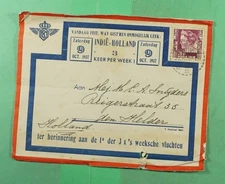 VANDAAG EEN, WAT GISTEREN ONMOGELIJK LEEK:
Zaterdag
9
OCT. 1937
INDIË-HOLLAND
3
KEER PER WEEK !
Zaterdag
9
OCT. 1937
Aan
Reigerstraat 35
den Helder
Holland
ter herinnering aan de 1e der 3 x 's weeksche vluchten